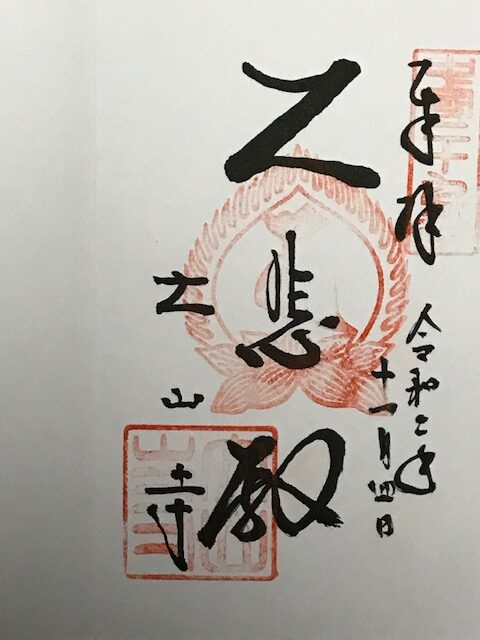 奉拝
令和二年
十一月四日
大悲殿
大山寺